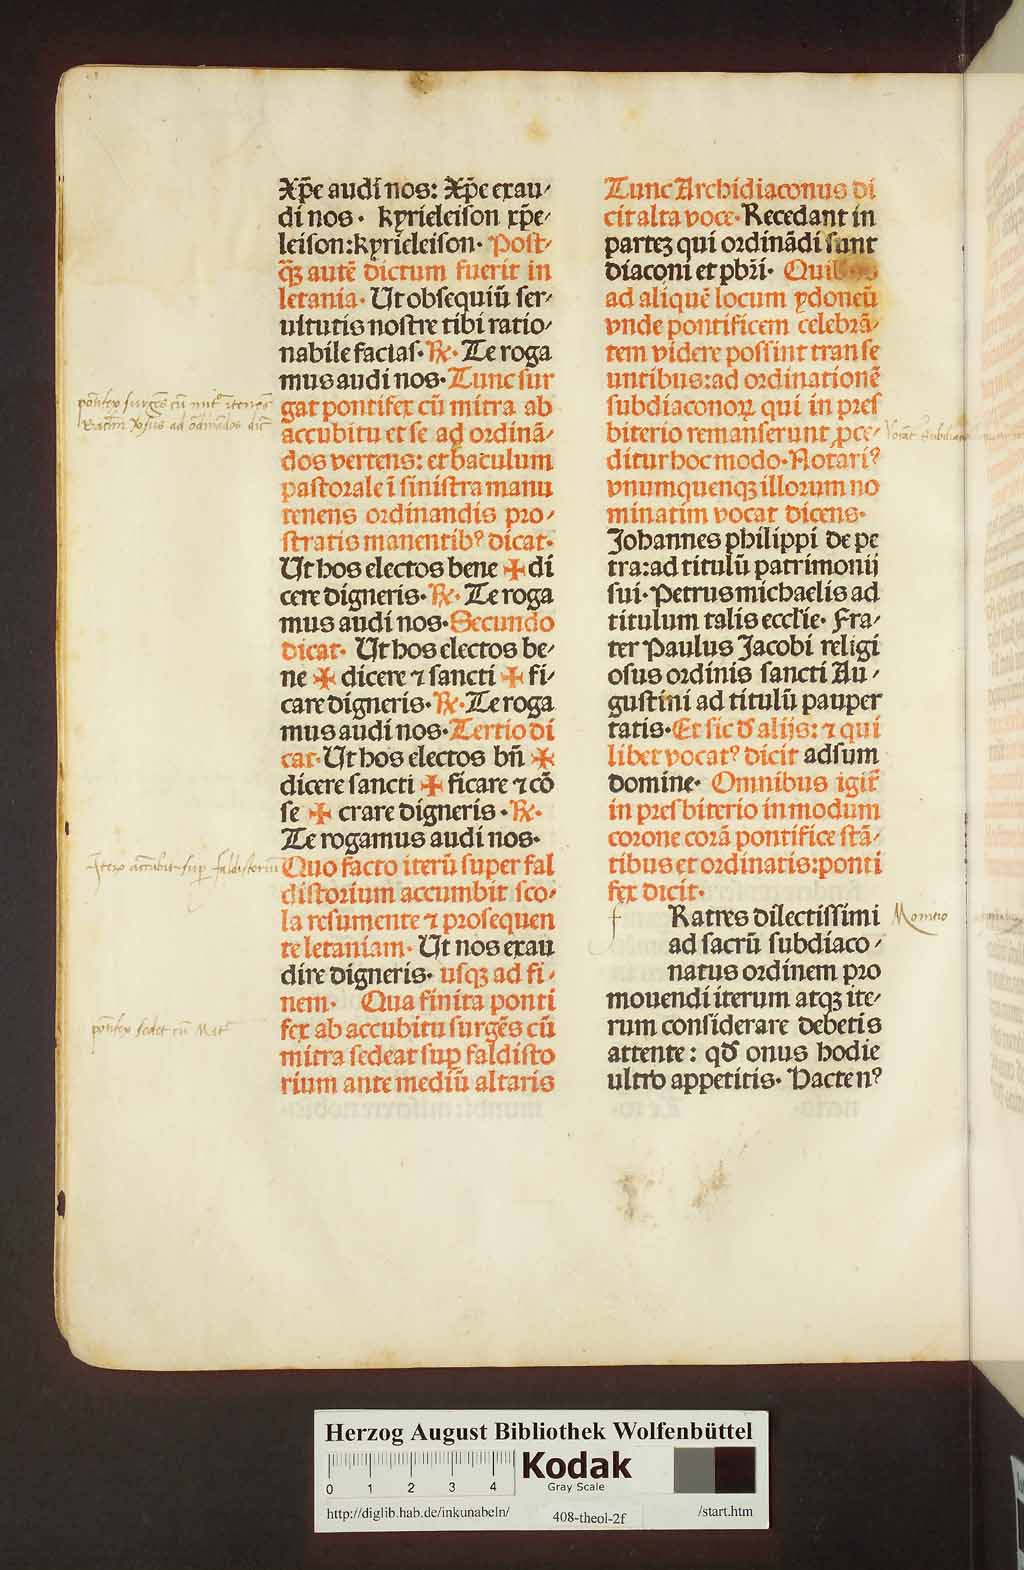 Xp̄e audi nos: Xp̄e exau⸗
di nos · kyrieleison xp̄e⸗
leison: kyrieleison · Post⸗
q̄ꝫ autē dictum fuerit in
letania · Ut obsequiū ser⸗
uitutis nostre tibi ratio⸗
nabile facias · ℟ · Te roga
mus audi nos · Tunc sur
gat pontifex cū mitra ab
accubitu et se ad ordinā⸗
dos vertens: et baculum
pastorale ī sinistra manu
tenens ordinandis pro⸗
stratis manentibꝰ dicat ·
Ut hos electos bene ✠ di
cere digneris · ℟ · Te roga
mus audi nos · Secundo
dicat · Ut hos electos be⸗
ne ✠ dicere ⁊ sancti ✠ fi⸗
care digneris · ℟ · Te roga
mus audi nos · Tertio di
cat · Ut hos electos bn̄ ✠
dicere sancti ✠ ficare ⁊ cō
se ✠ crare digneris · ℟ ·
Te rogamus audi nos ·
Quo facto iterū super fal
distorium accumbit sco⸗
la resumente ⁊ prosequen
te letaniam · Ut nos exau
dire digneris · usqꝫ ad fi⸗
nem · Qua finita ponti
fex ab accubitu surgēs cū
mitra sedeat suꝑ faldisto
rium ante mediū altaris
Tunc Archidiaconus di
cit alta voce · Recedant in
partez qui ordinādi sunt
diaconi et pbr̄i ·
ad aliquē locum ydoneū
vnde pontificem celebrā⸗
tem videre possint transe
untibus: ad ordinationē
subdiaconoꝝ qui in pres
biterio remanserunt ꝓce⸗
ditur hoc modo · Notariꝰ
vnumquenqꝫ illorum no
minatim vocat dicens ·
Johannes philippi de pe
tra: ad titulū patrimonij
sui · Petrus michaelis ad
titulum talis ecclīe · Fra⸗
ter Paulus Jacobi religi
osus ordinis sancti Au⸗
gustini ad titulū pauper
tatis · Et sic đ alijs: ⁊ qui
libet vocatꝰ dicit adsum
domine · Omnibus igit̄
in presbiterio in modum
corone corā pontifice stā⸗
tibus et ordinatis: ponti
fex dicit ·
f Ratres dilectissimi
ad sacrū subdiaco⸗
natus ordinem pro
mouendi iterum atqꝫ ite⸗
rum considerare debetis
attente: qđ onus hodie
ultro appetitis · Hactenꝰ
Itero accūbit sup faldistoriū
pontifex sedet cū Mit
Monitio
Herzog August Bibliothek Wolfenbüttel
0 1 2 3 4
Kodak
Gray Scale
http://diglib.hab.de/inkunabeln/
408-theol-2f
/start.htm